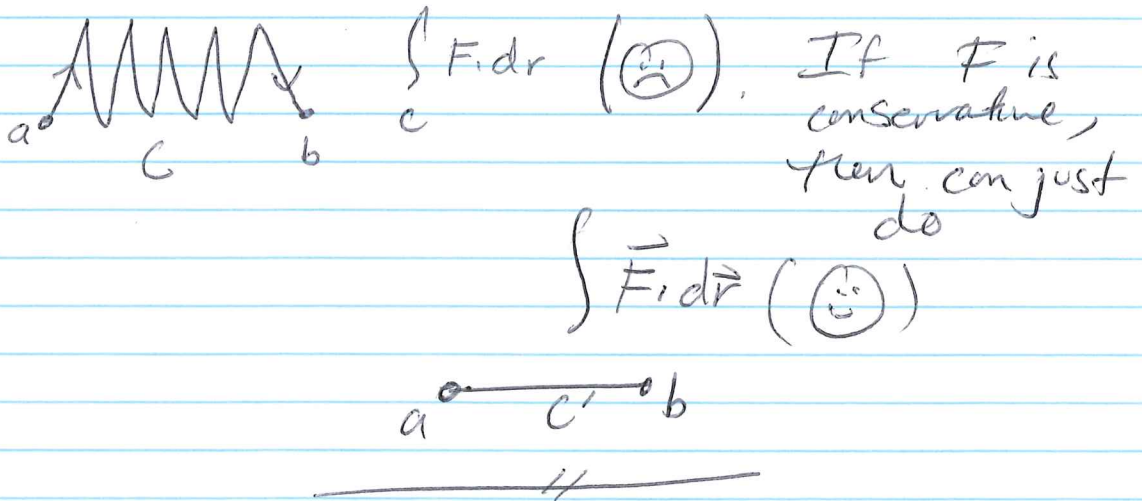 ∫ F·dr (☹). If F is
C
conservative,
a C b
then can just
do
∫ F⃗·dr⃗ (☺)
a C' b
//